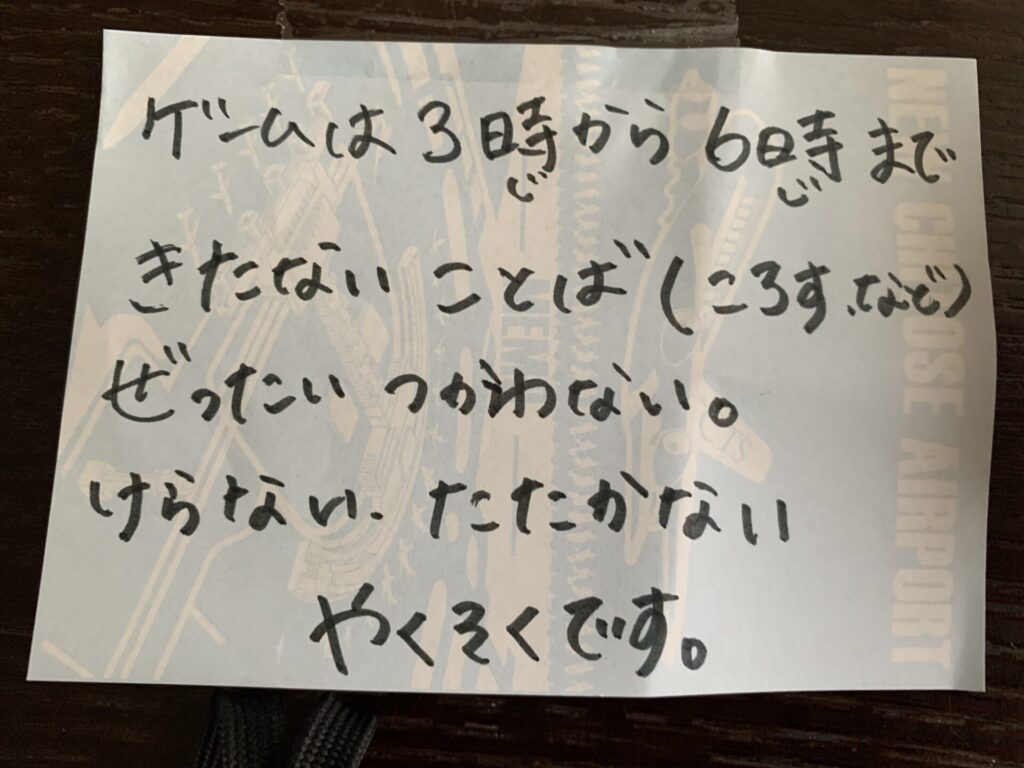 ゲームは3時から6時まで
じ じ
きたない ことば(ころす、など)
ぜったい つかわない。
けらない、たたかない
やくそくです。
NEW CHITOSE AIRPORT
CTS